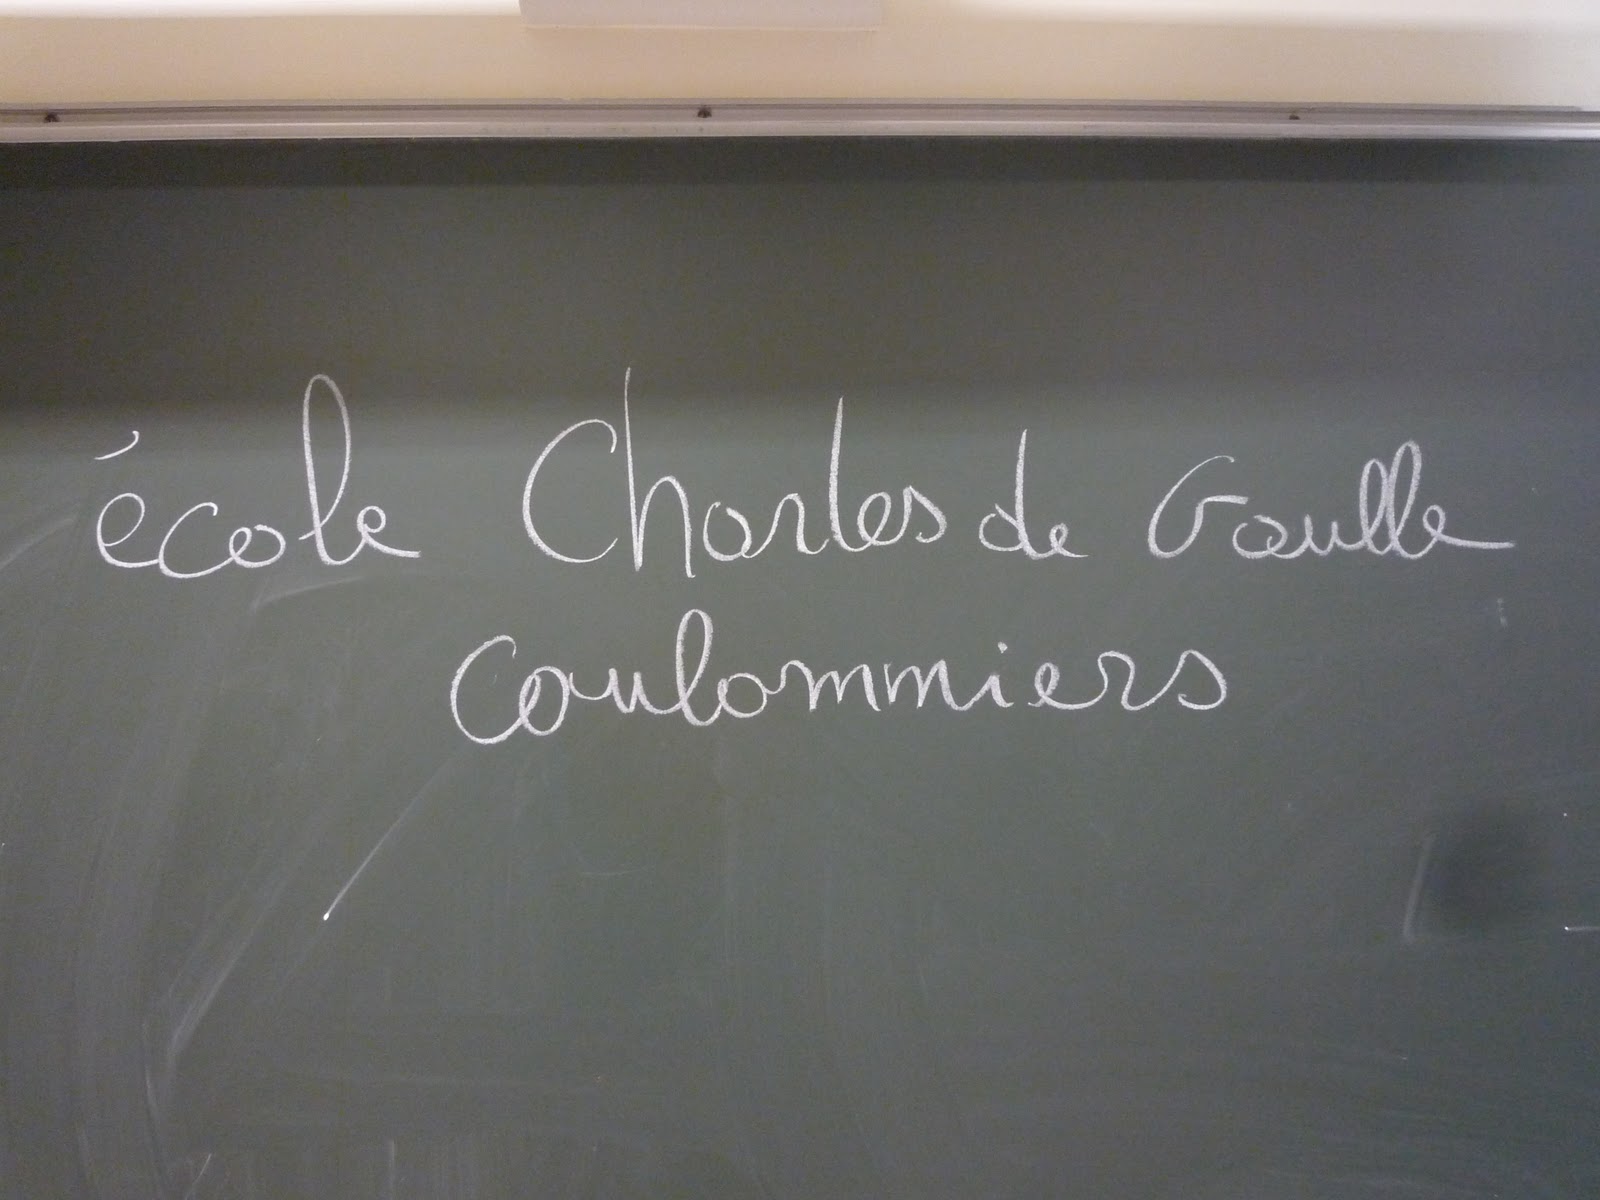 école Charles de Gaulle
Coulommiers